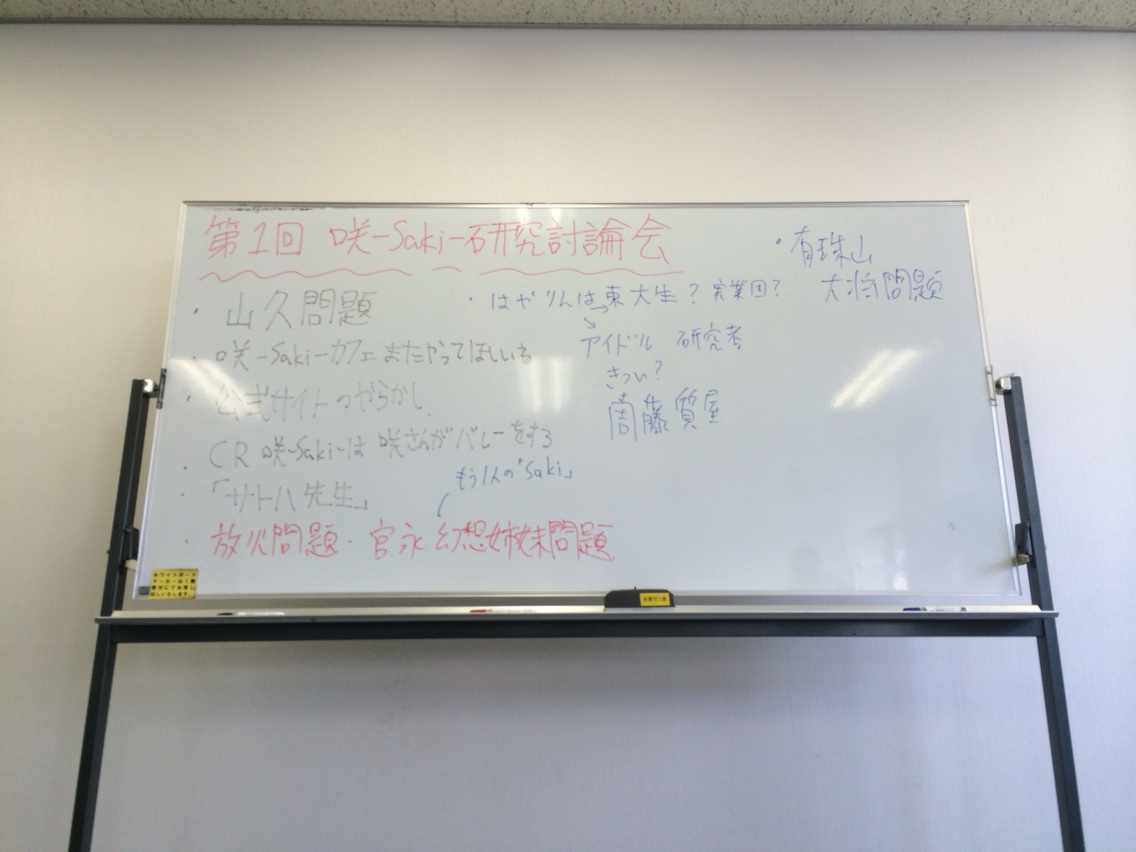 第1回 咲-Saki-研究討論会
・山久問題
・咲-Saki-カフェまたやってほしいる
・公式サイトのやらかし
・CR 咲-Saki-は 咲さんがバレーをする
・「サトハ先生」
もう1人の「Saki」
・放火問題・宮永幻想姉妹問題
・はやりんは→東大生？実業団？
アイドル 研究者
きつい？
齋藤質屋
・有珠山
大将問題